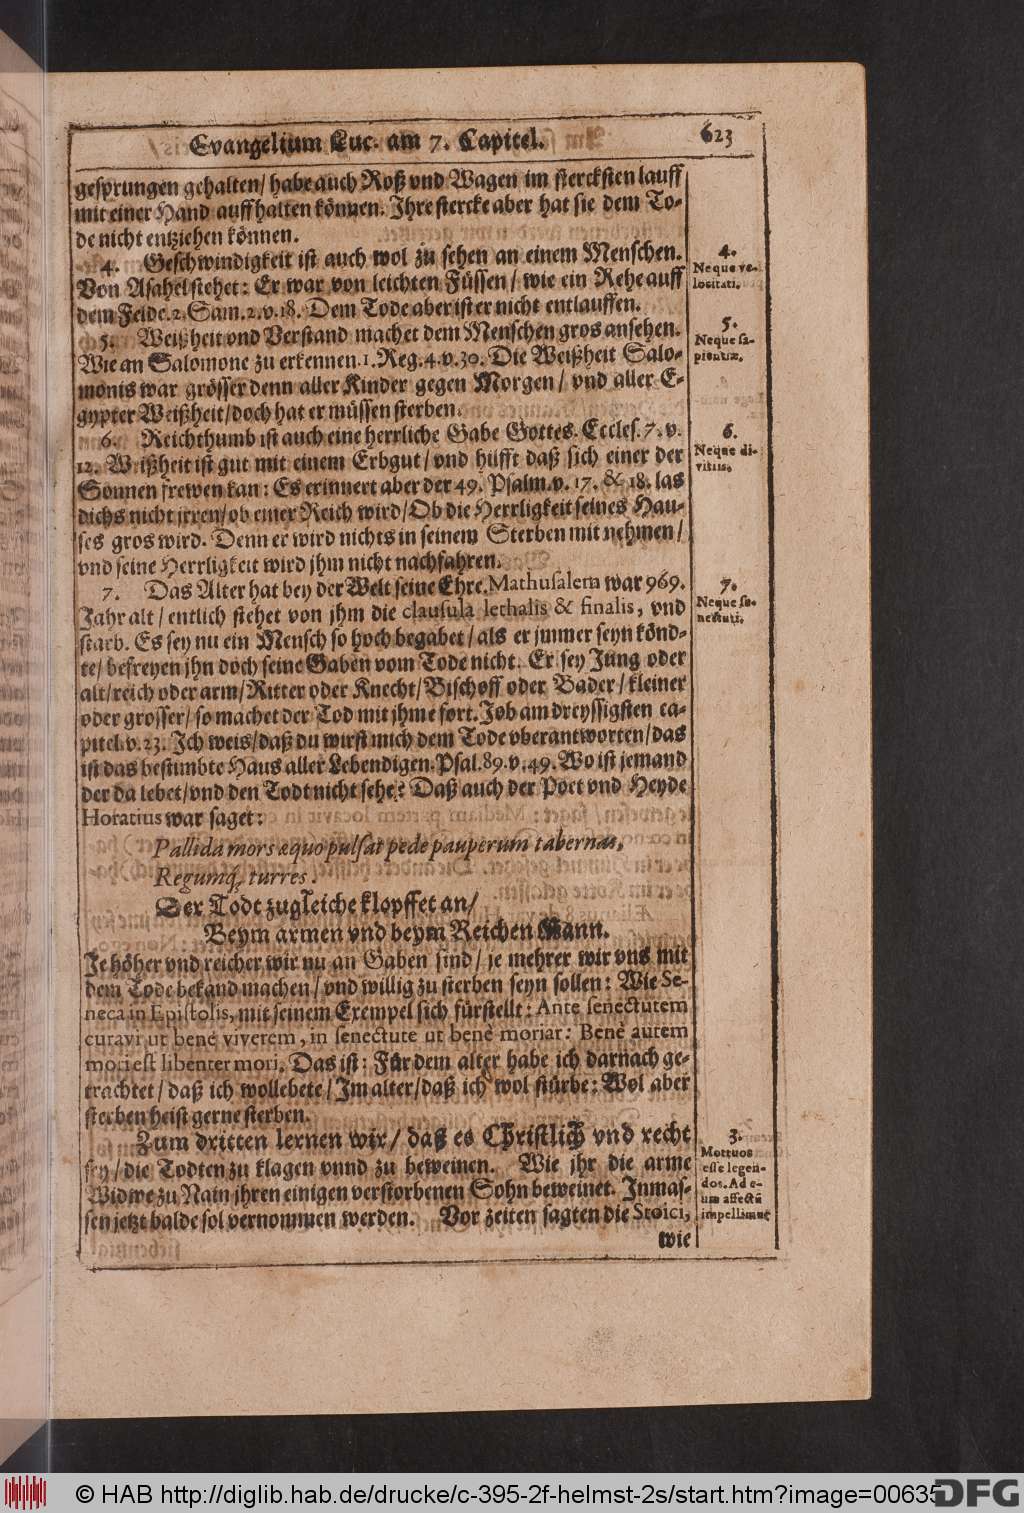 Evangelium Luc. am 7. Capitel.
623
gesprungen gehalten/ habe auch Roß vnd Wagen im stercksten lauff
mit einer Hand auffhalten können. Ihre stercke aber hat sie dem To-
de nicht entziehen können.
4. Geschwindigkeit ist auch wol zu sehen an einem Menschen.
Von Asahel stehet: Er war von leichten Füssen/ wie ein Rehe auff
dem Felde. 2. Sam. 2. v. 18. Dem Tode aber ist er nicht entlauffen.
5. Weißheit vnd Verstand machet dem Menschen gros ansehen.
Wie an Salomone zu erkennen. 1. Reg. 4. v. 30. Die Weißheit Salo-
monis war grösser denn aller Kinder gegen Morgen/ vnd aller E-
gypter Weißheit/ doch hat er müssen sterben.
6. Reichthumb ist auch eine herrliche Gabe Gottes. Eccles. 7. v.
12. Weißheit ist gut mit einem Erbgut/ vnd hilfft daß sich einer der
Sonnen frewen kan: Es erinnert aber der 49. Psalm. v. 17. & 18. las
dichs nicht jrren/ ob einer Reich wird/ Ob die Herrligkeit seines Hau-
ses gros wird. Denn er wird nichts in seinem Sterben mit nehmen/
vnd seine Herrligkeit wird jhm nicht nachfahren.
7. Das Alter hat bey der Welt seine Ehre. Mathusalem war 969.
Jahr alt/ entlich stehet von jhm die clausula lethalis & finalis, vnd
starb. Es sey nu ein Mensch so hoch begabet/ als er jmmer seyn könd-
te/ befreyen jhn doch seine Gaben vom Tode nicht. Er sey Jung oder
alt/ reich oder arm/ Ritter oder Knecht/ Bischoff oder Bader/ kleiner
oder grosser/ so machet der Tod mit jhme fort. Job am dreyssigsten ca-
pitel. v. 23. Ich weis/ daß du wirst mich dem Tode vberantworten/ das
ist das bestimbte Haus aller Lebendigen. Psal. 89. v. 49. Wo ist jemand
der da lebet/ vnd den Todt nicht sehe? Daß auch der Poet vnd Heyde
Horatius war saget:
Pallida mors æquo pulsat pede pauperum tabernas,
Regumq; turres.
Der Todt zugleiche klopffet an/
Beym armen vnd beym Reichen Mann.
Je höher vnd reicher wir nu an Gaben sind/ je mehrer wir vns mit
dem Tode bekand machen/ vnd willig zu sterben seyn sollen: Wie Se-
neca in Epistolis, mit seinem Exempel sich fürstellt: Ante senectutem
curavi ut benè viverem, in senectute ut benè moriar: Benè autem
mori est libenter mori. Das ist: Für dem alter habe ich darnach ge-
trachtet/ daß ich wol lebete/ Im alter/ daß ich wol stürbe: Wol aber
sterben heist gerne sterben.
Zum dritten lernen wir/ daß es Christlich vnd recht
sey/ die Todten zu klagen vnnd zu beweinen. Wie jhr die arme
Widwe zu Nain jhren einigen verstorbenen Sohn beweinet. Inmas-
sen jetzt balde sol vernommen werden. Vor zeiten sagten die Stoici,
wie
4.
Neque ve-
locitati.
5.
Neque sa-
pientiæ.
6.
Neque di-
vitiis.
7.
Neque se-
nectuti.
3.
Mortuos
esse legen-
dos. Ad e-
um affectū
impellimur
© HAB http://diglib.hab.de/drucke/c-395-2f-helmst-2s/start.htm?image=00635
DFG